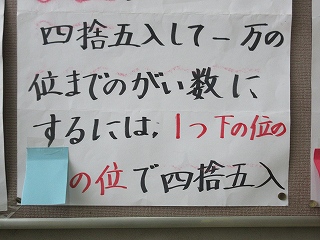 四捨五入して一万の
位までのがい数に
するには,1つ下の位の
の位で四捨五入